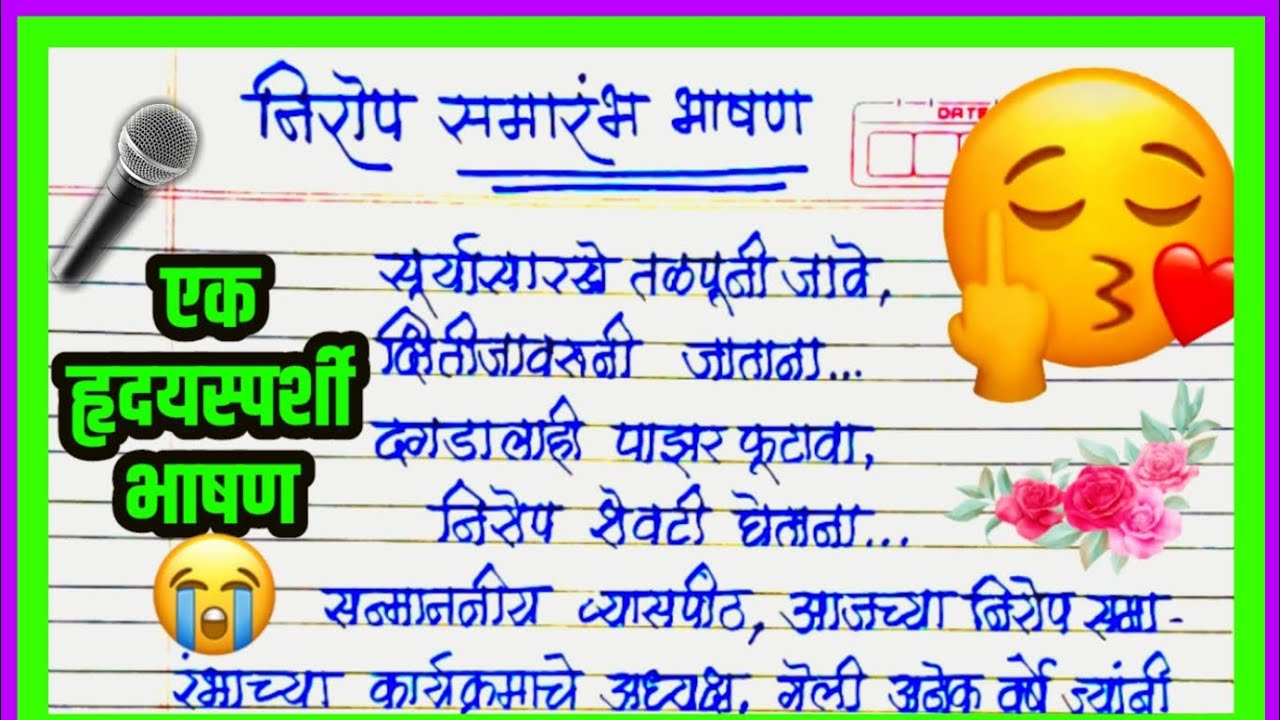 निरोप समारंभ भाषण
DATE
एक
हृदयस्पर्शी
भाषण
सूर्यासारखे तळपूनी जावे,
क्षितीजावरूनी जाताना...
दगडालाही पाझर फूटावा,
निरोप शेवटी घेताना...
सन्माननीय व्यासपीठ, आजच्या निरोप समा-
रंभाच्या कार्यक्रमाचे अध्यक्ष, गेली अनेक वर्षे ज्यांनी